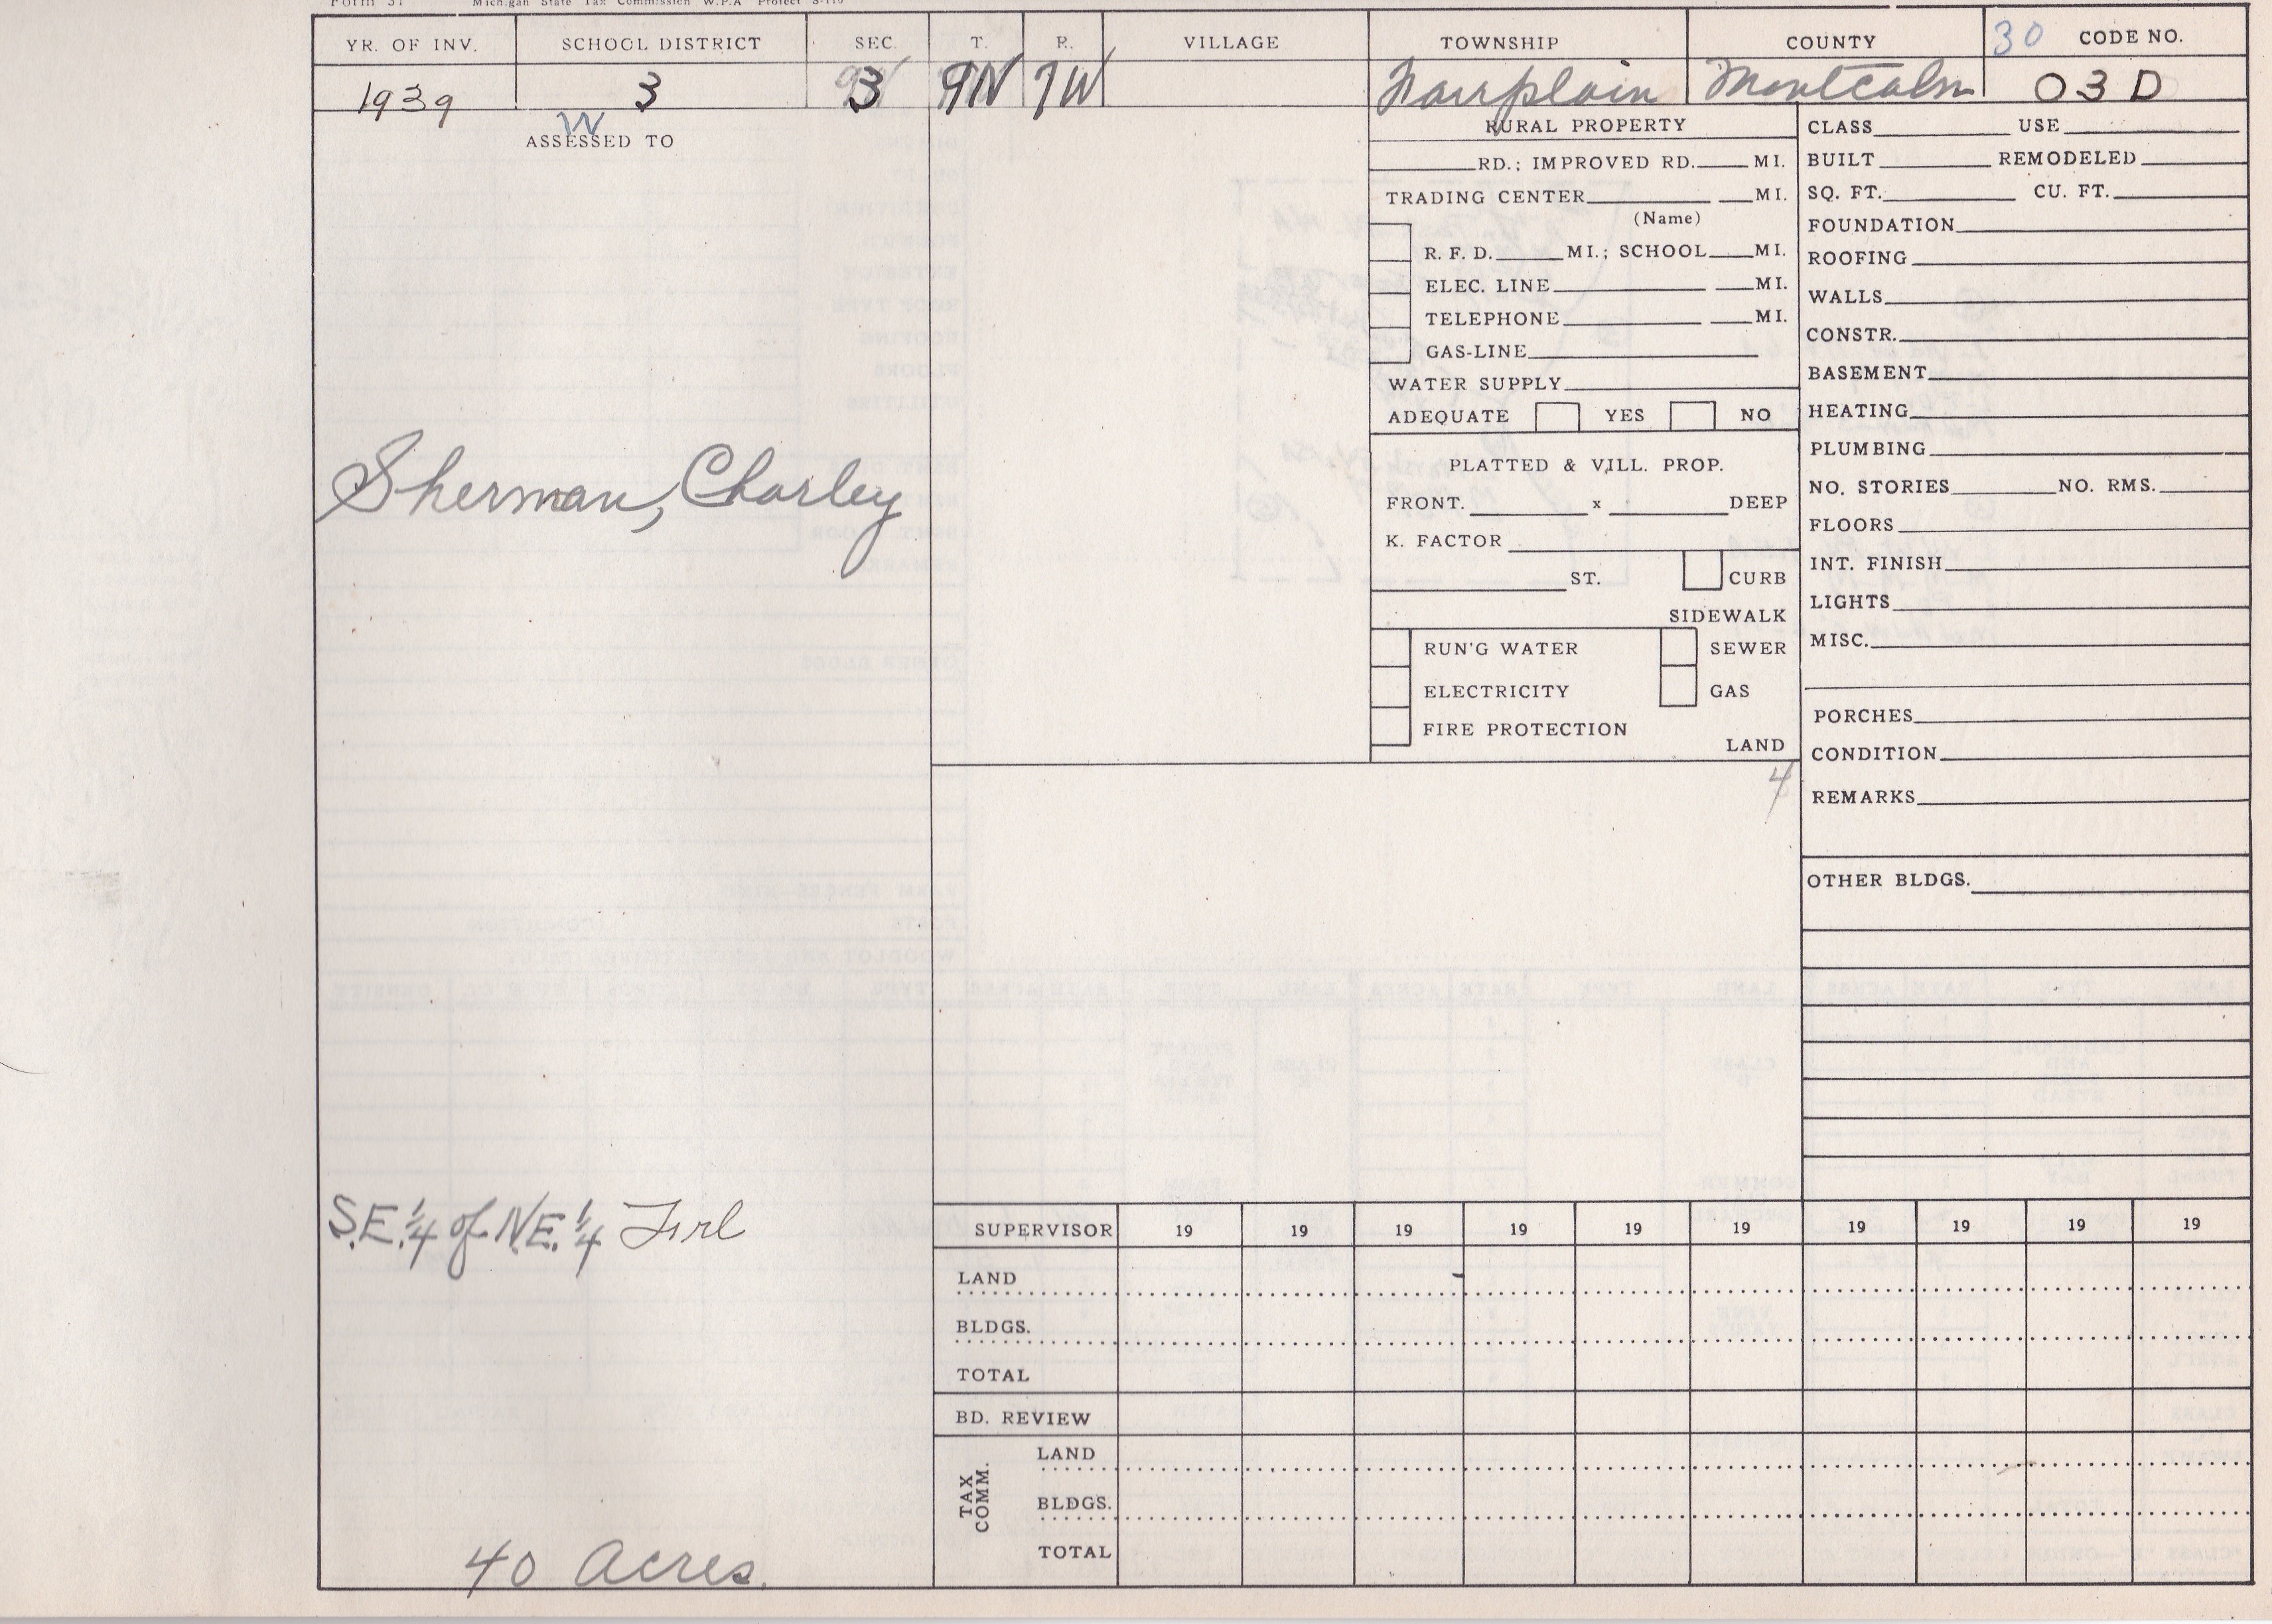 Form 37 Michigan State Tax Commission W.P.A Project S-110
YR. OF INV. SCHOOL DISTRICT SEC. T. R. VILLAGE TOWNSHIP COUNTY 30 CODE NO.
1939 3 3 9N 7W Fairplain Montcalm 03 D
W
ASSESSED TO
Sherman, Charley
S.E. 1/4 of N.E. 1/4 Frl
40 Acres.
RURAL PROPERTY
RD.; IMPROVED RD. MI.
TRADING CENTER MI.
(Name)
R. F. D. MI.; SCHOOL MI.
ELEC. LINE MI.
TELEPHONE MI.
GAS-LINE
WATER SUPPLY
ADEQUATE YES NO
PLATTED & VILL. PROP.
FRONT. x DEEP
K. FACTOR
ST. CURB
SIDEWALK
RUN'G WATER SEWER
ELECTRICITY GAS
FIRE PROTECTION
LAND
4
CLASS USE
BUILT REMODELED
SQ. FT. CU. FT.
FOUNDATION
ROOFING
WALLS
CONSTR.
BASEMENT
HEATING
PLUMBING
NO. STORIES NO. RMS.
FLOORS
INT. FINISH
LIGHTS
MISC.
PORCHES
CONDITION
REMARKS
OTHER BLDGS.
SUPERVISOR 19 19 19 19 19 19 19 19 19 19
LAND
BLDGS.
TOTAL
BD. REVIEW
TAX COMM.
LAND
BLDGS.
TOTAL